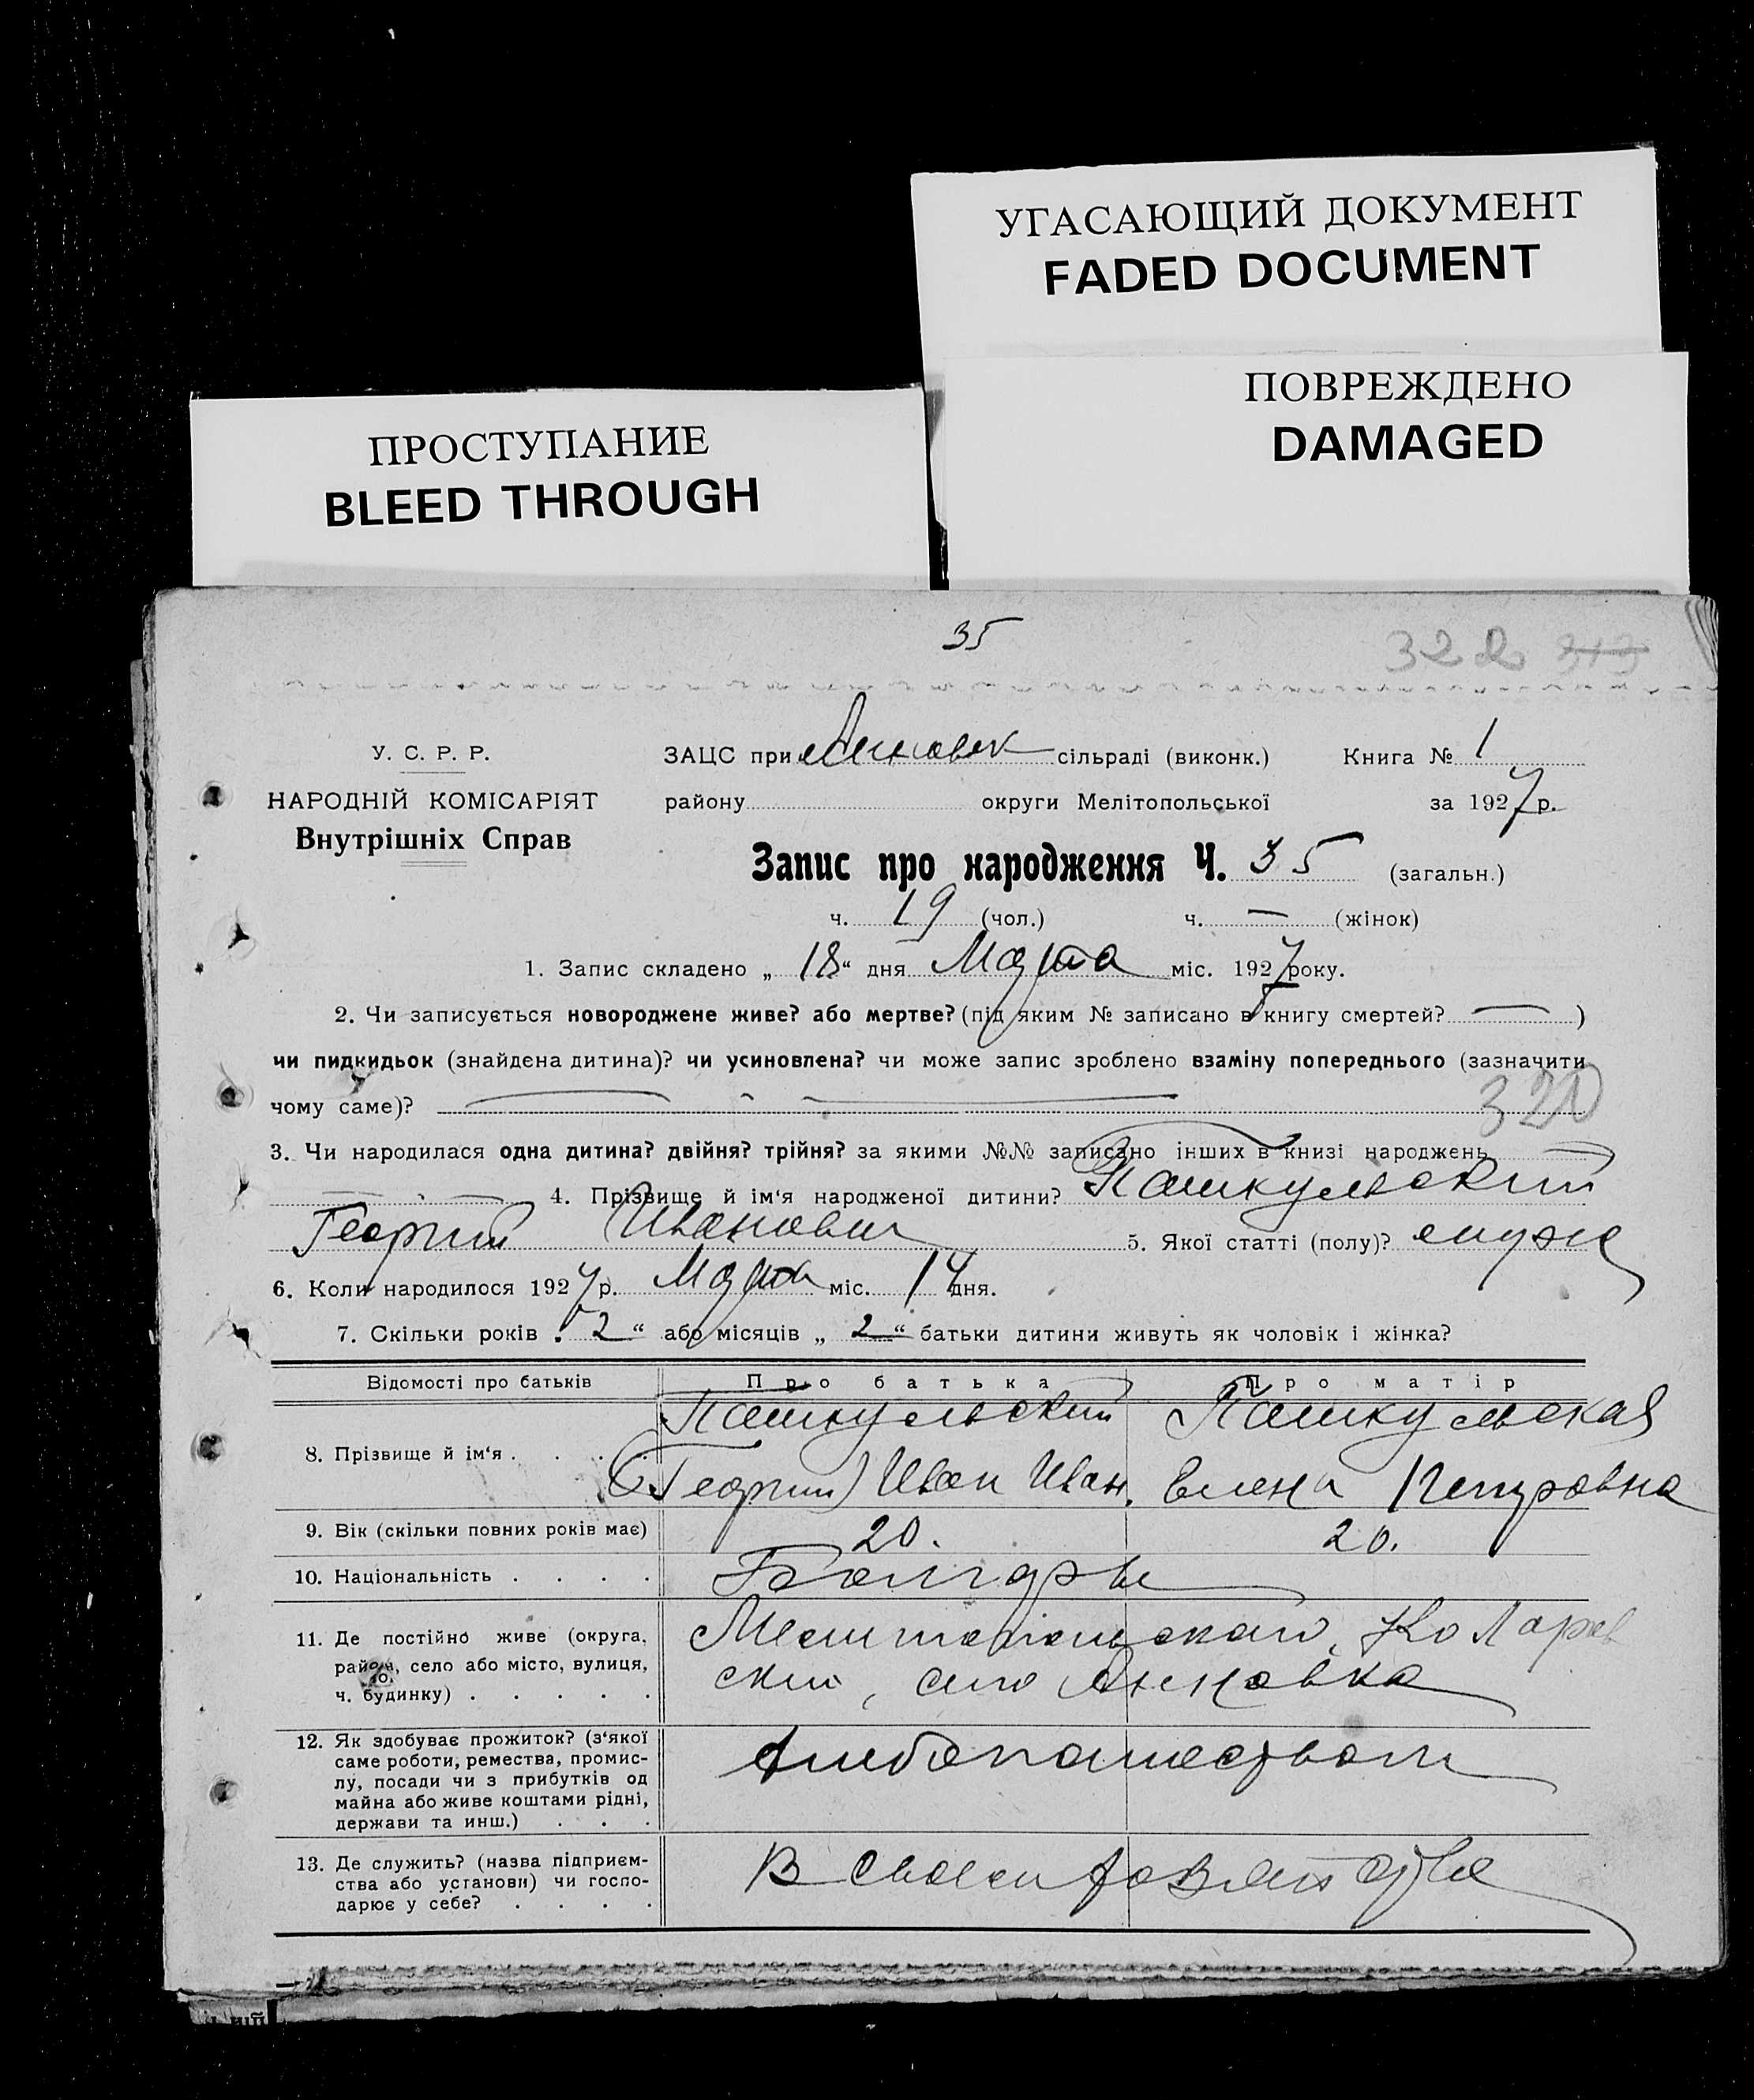 УГАСАЮЩИЙ ДОКУМЕНТ
FADED DOCUMENT
ПОВРЕЖДЕНО
DAMAGED
ПРОСТУПАНИЕ
BLEED THROUGH
35
322 313
У. С. Р. Р.
НАРОДНІЙ КОМІСАРІЯТ
Внутрішніх Справ
ЗАЦС при Анновск сільраді (виконк.) Книга № 1
району округи Мелітопольської за 1927 р.
Запис про народження Ч. 35 (загальн.)
ч. 19 (чол.) ч. — (жінок)
1. Запис складено „ 18 “ дня Марта міс. 1927 року.
2. Чи записується новороджене живе? або мертве? (під яким № записано в книгу смертей? — )
чи пидкидьок (знайдена дитина)? чи усиновлена? чи може запис зроблено взаміну попереднього (зазначити
чому саме)? 320
3. Чи народилася одна дитина? двійня? трійня? за якими №№ записано інших в книзі народжень
4. Прізвище й ім‘я народженої дитини? Пашкульский
Георгий Иванович 5. Якої статті (полу)? муж
6. Коли народилося 1927 р. Марта міс. 14 дня.
7. Скільки років „ 2 “ або місяців „ 2 “ батьки дитини живуть як чоловік і жінка?
Відомості про батьків Про батька Про матір
8. Прізвище й ім‘я . . . . Пашкульский Пашкульская
(Георгий) Иван Иван. Елена Петровна
9. Вік (скільки повних років має) 20. 20.
10. Національність . . . . Болгары
11. Де постійно живе (округа, район, село або місто, вулиця, ч. будинку) . . . . . Мелитопольского, Коларов
ский, село Анновка
12. Як здобуває прожиток? (з‘якої саме роботи, ремества, промис-
лу, посади чи з прибутків од
майна або живе коштами рідні,
держави та инш.) . . . Хлебопашеством
13. Де служить? (назва підприєм-
ства або установи) чи госпо-
дарює у себе? . . . . В своем хозяйстве